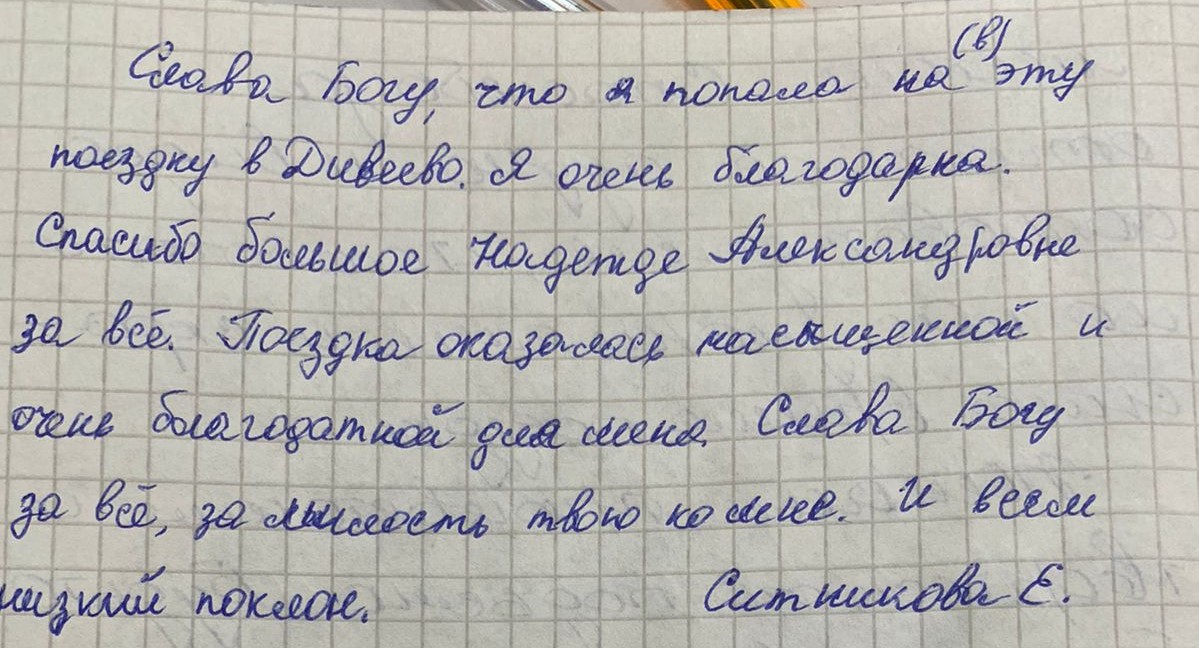 Слава Богу, что я попала на (в) эту
поездку в Дивеево. Я очень благодарна.
Спасибо большое Надежде Александровне
за всё. Поездка оказалась насыщенной и
очень благодатной для меня. Слава Богу
за всё, за милость твою ко мне. И всем
низкий поклон. Ситникова Е.